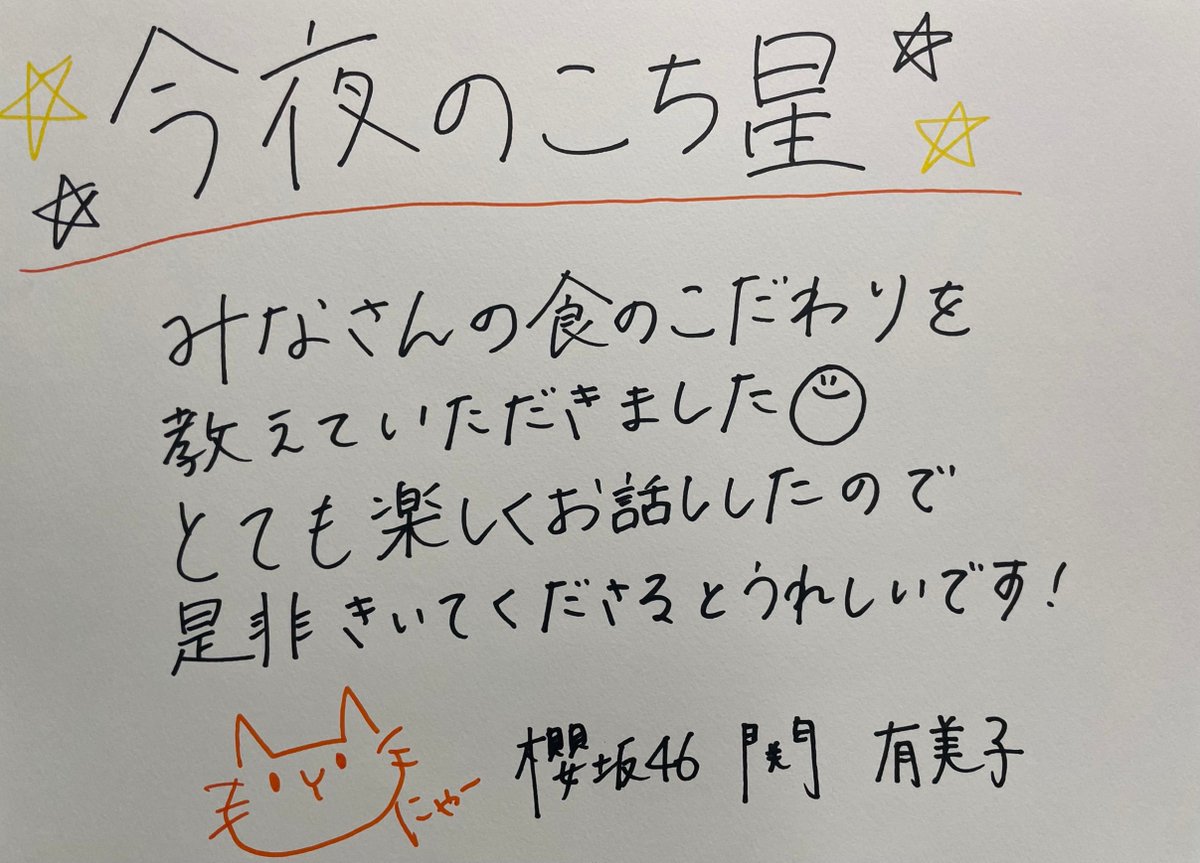 今夜のこち星
みなさんの食のこだわりを
教えていただきました
とても楽しくお話ししたので
是非きいてくださるとうれしいです！
にゃー
櫻坂46 関 有美子